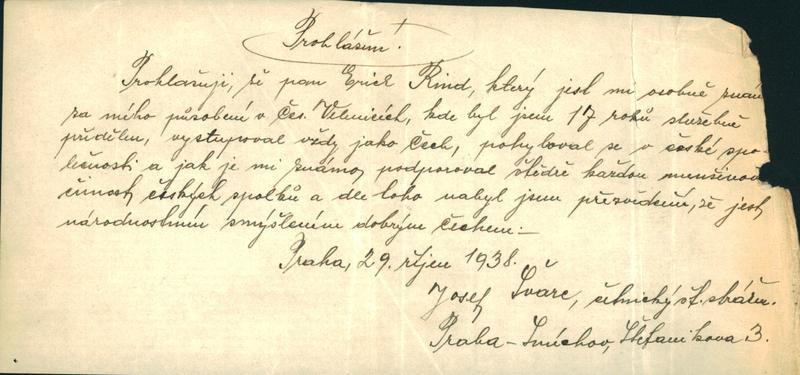 Prohlášení!
Prohlašuji, že pan Erich Rind, který jest mi osobně znám
za mého působení v Čes. Velenicích, kde byl jsem 17 roků služebně
přidělen, vystupoval vždy jako Čech, pohyboval se v české spo-
lečnosti a jak je mi známo, podporoval štědře každou menšinovou
činnost českých spolků a dle toho nabyl jsem přesvědčení, že jest
národnostním smýšlením dobrým čechem.—
Praha, 29. říjen 1938.
Josef Švarc, četnický št. strážm.
Praha – Smíchov, Štefanikova 3.